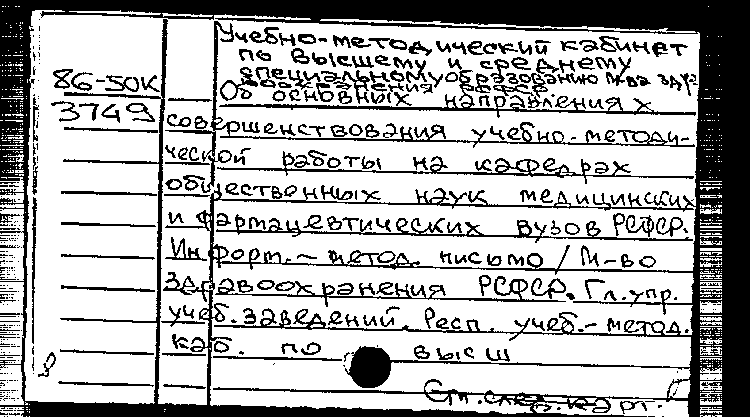 Учебно-методический кабинет
по высшему и среднему
специальному образованию М-ва здра-
воохранения РСФСР
86-50К
3749
Об основных направлениях
совершенствования учебно-методи-
ческой работы на кафедрах
общественных наук медицинских
и фармацевтических вузов РСФСР.
Информ.-метод. письмо / М-во
здравоохранения РСФСР. Гл. упр.
учеб. заведений. Респ. учеб.-метод.
каб. по высш
См. след. карт.